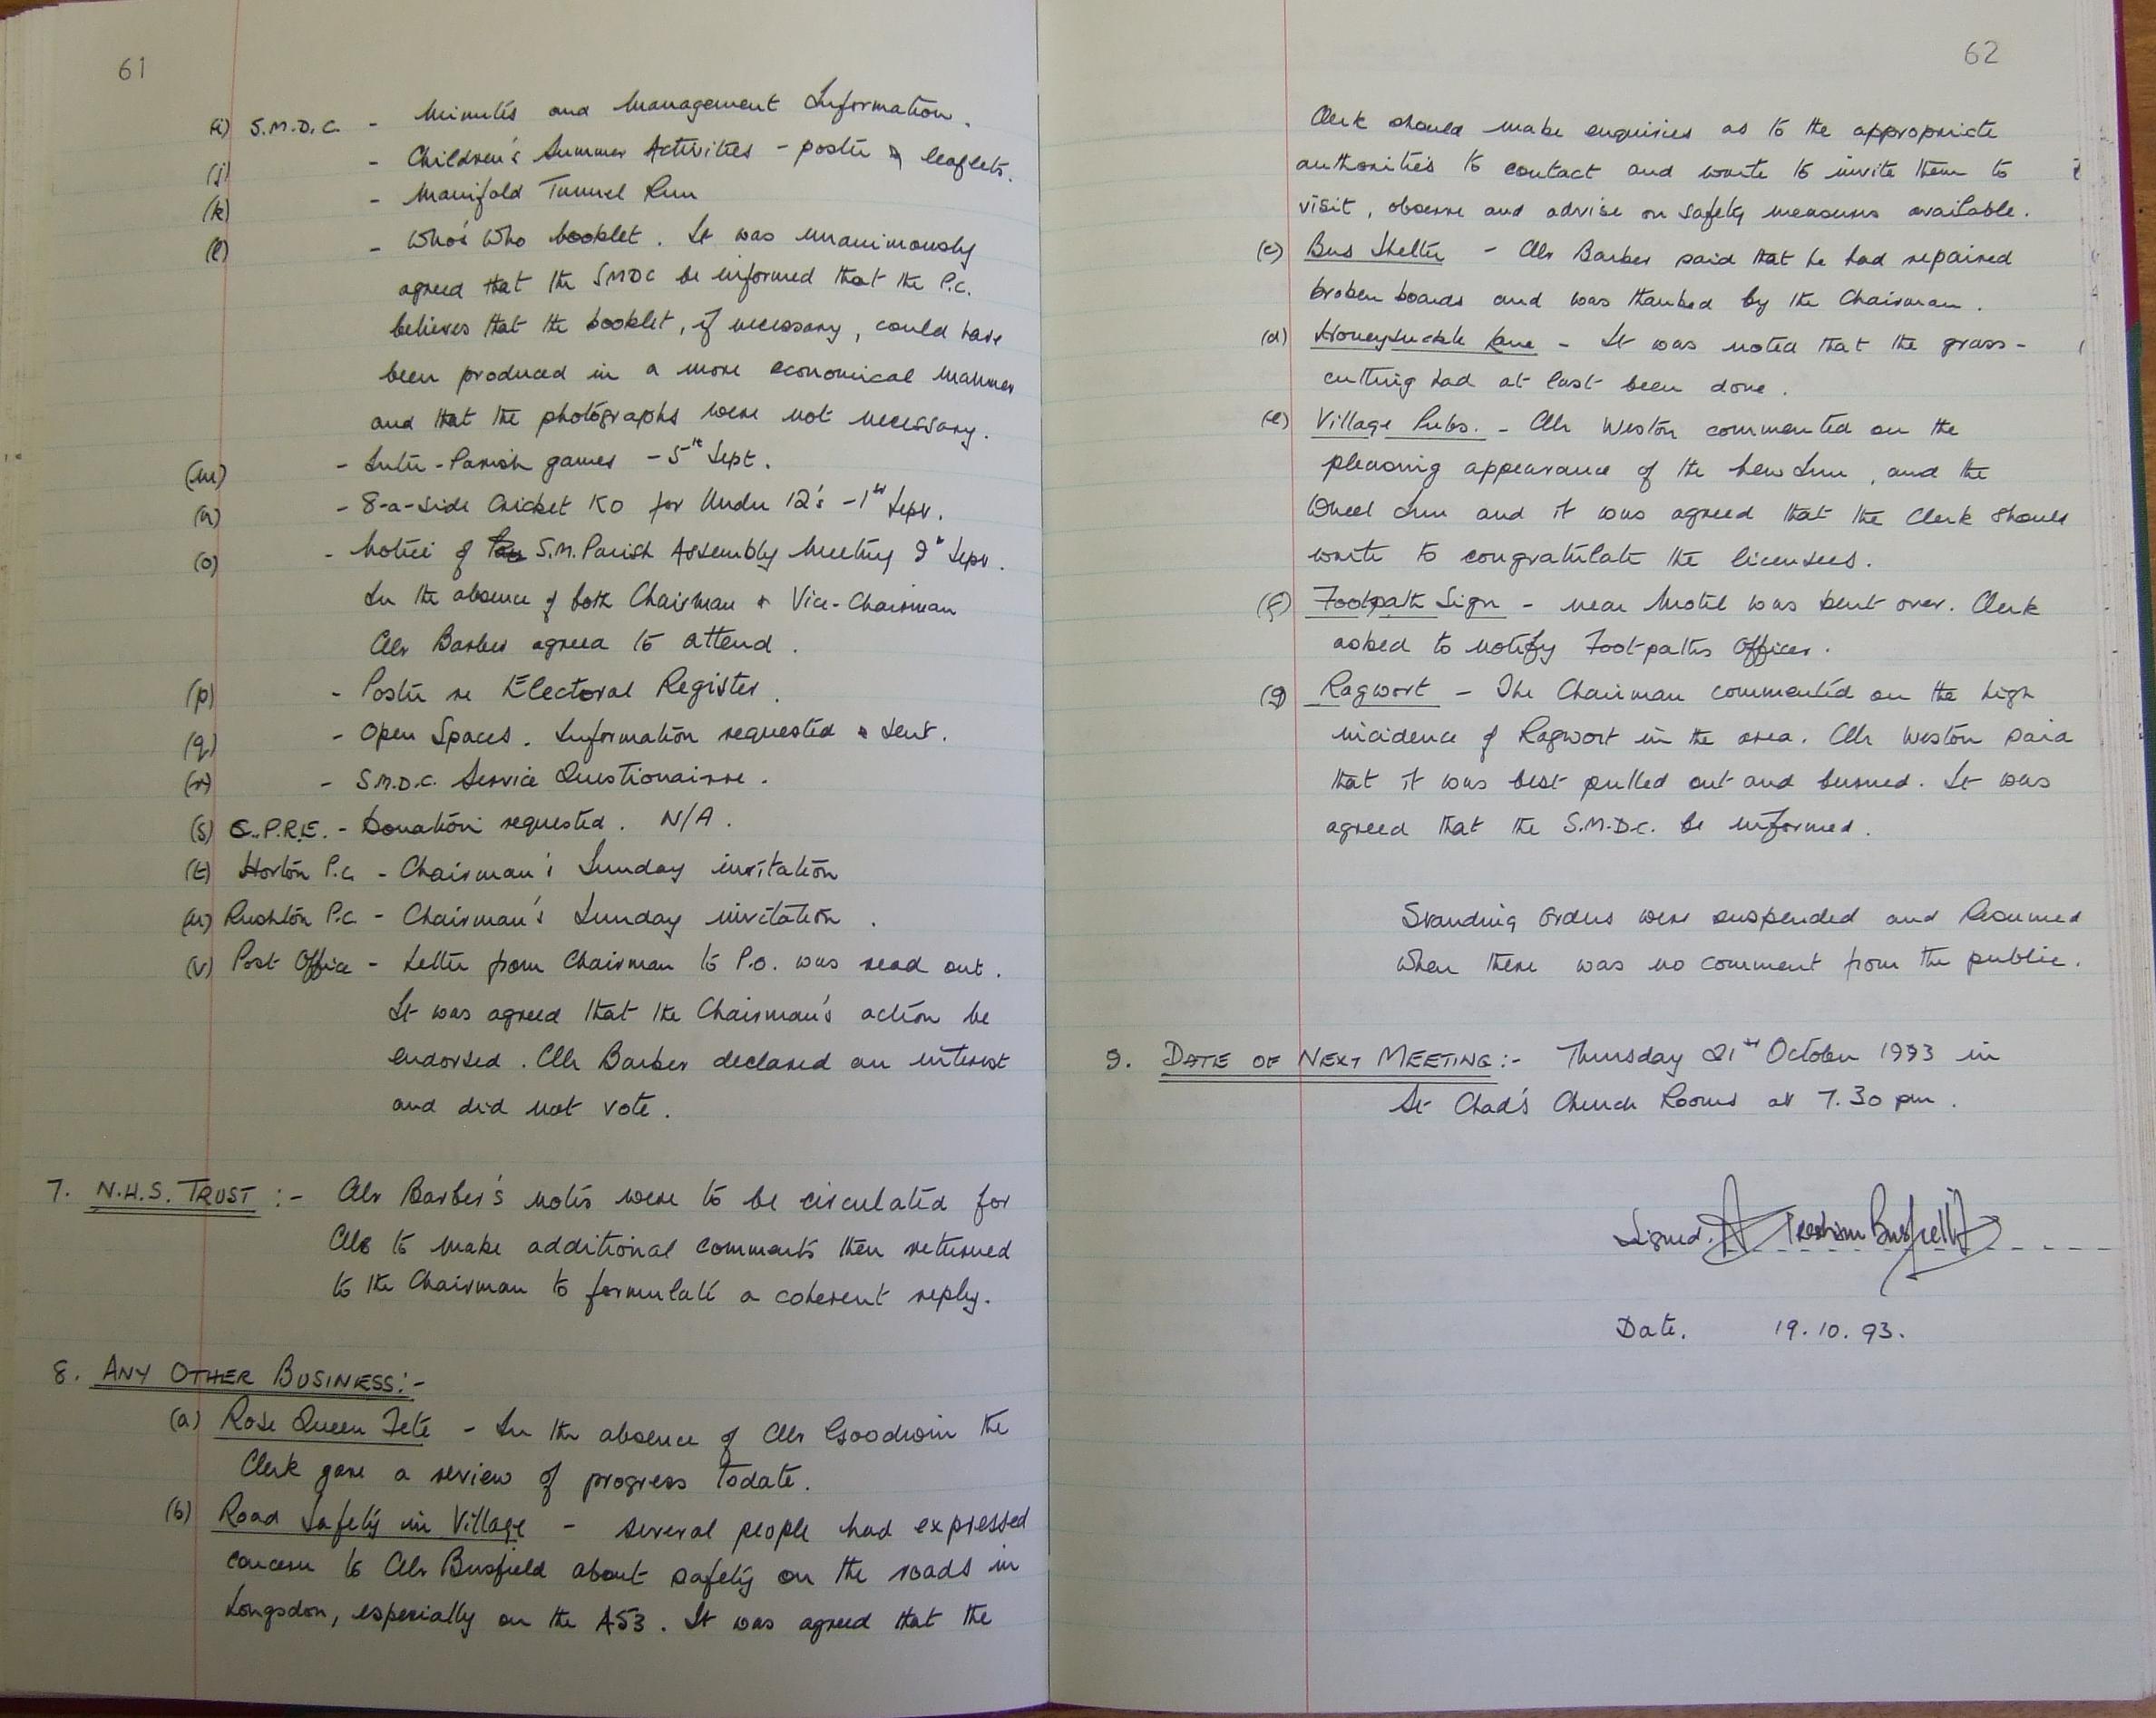 61
(i) S.M.D.C. - Minutes and Management Information.
(j) - Children's Summer Activities - poster & leaflets.
(k) - Manifold Tunnel Run
(l) - Who's Who booklet. It was unanimously
agreed that the SMDC be informed that the P.C.
believes that the booklet, if necessary, could have
been produced in a more economical manner
and that the photographs were not necessary.
(m) - Inter-Parish games - 5th Sept.
(n) - 8-a-side Cricket KO for Under 12's - 1st Sept.
(o) - Notice of S.M. Parish Assembly Meeting 9th Sept.
In the absence of both Chairman & Vice-Chairman
Cllr Barber agreed to attend.
(p) - Poster re Electoral Register.
(q) - Open Spaces. Information requested & sent.
(r) - S.M.D.C. Service Questionairre.
(s) C.P.R.E. - Donation requested. N/A.
(t) Horton P.C. - Chairman's Sunday invitation
(u) Rushton P.C. - Chairman's Sunday invitation.
(v) Post Office - Letter from Chairman to P.O. was read out.
It was agreed that the Chairman's action be
endorsed. Cllr Barber declared an interest
and did not vote.
7. N.H.S. TRUST :- Cllr Barber's notes were to be circulated for
Cllrs to make additional comments then returned
to the Chairman to formulate a coherent reply.
8. ANY OTHER BUSINESS:-
(a) Rose Queen Fete - In the absence of Cllr Goodwin the
Clerk gave a review of progress todate.
(b) Road Safety in Village - several people had expressed
concern to Cllr Busfield about safety on the roads in
Longsdon, especially on the A53. It was agreed that the
62
Clerk should make enquiries as to the appropriate
authorities to contact and write to invite them to
visit, observe and advise on safety measures available.
(c) Bus Shelter - Cllr Barber said that he had repaired
broken boards and was thanked by the Chairman.
(d) Honeysuckle Lane - It was noted that the grass-
cutting had at last been done.
(e) Village Pubs. - Cllr Weston commented on the
pleasing appearance of the New Inn, and the
Wheel Inn and it was agreed that the Clerk should
write to congratulate the licensees.
(f) Footpath Sign - near Motel was bent over. Clerk
asked to notify Footpaths Officer.
(g) Ragwort - The Chairman commented on the high
incidence of Ragwort in the area. Cllr Weston said
that it was best pulled out and burned. It was
agreed that the S.M.D.C. be informed.
Standing Orders were suspended and Resumed
when there was no comment from the public.
9. DATE OF NEXT MEETING:- Thursday 21st October 1993 in
St Chad's Church Rooms at 7.30 pm.
Signed. Busfield
Date. 19.10.93.